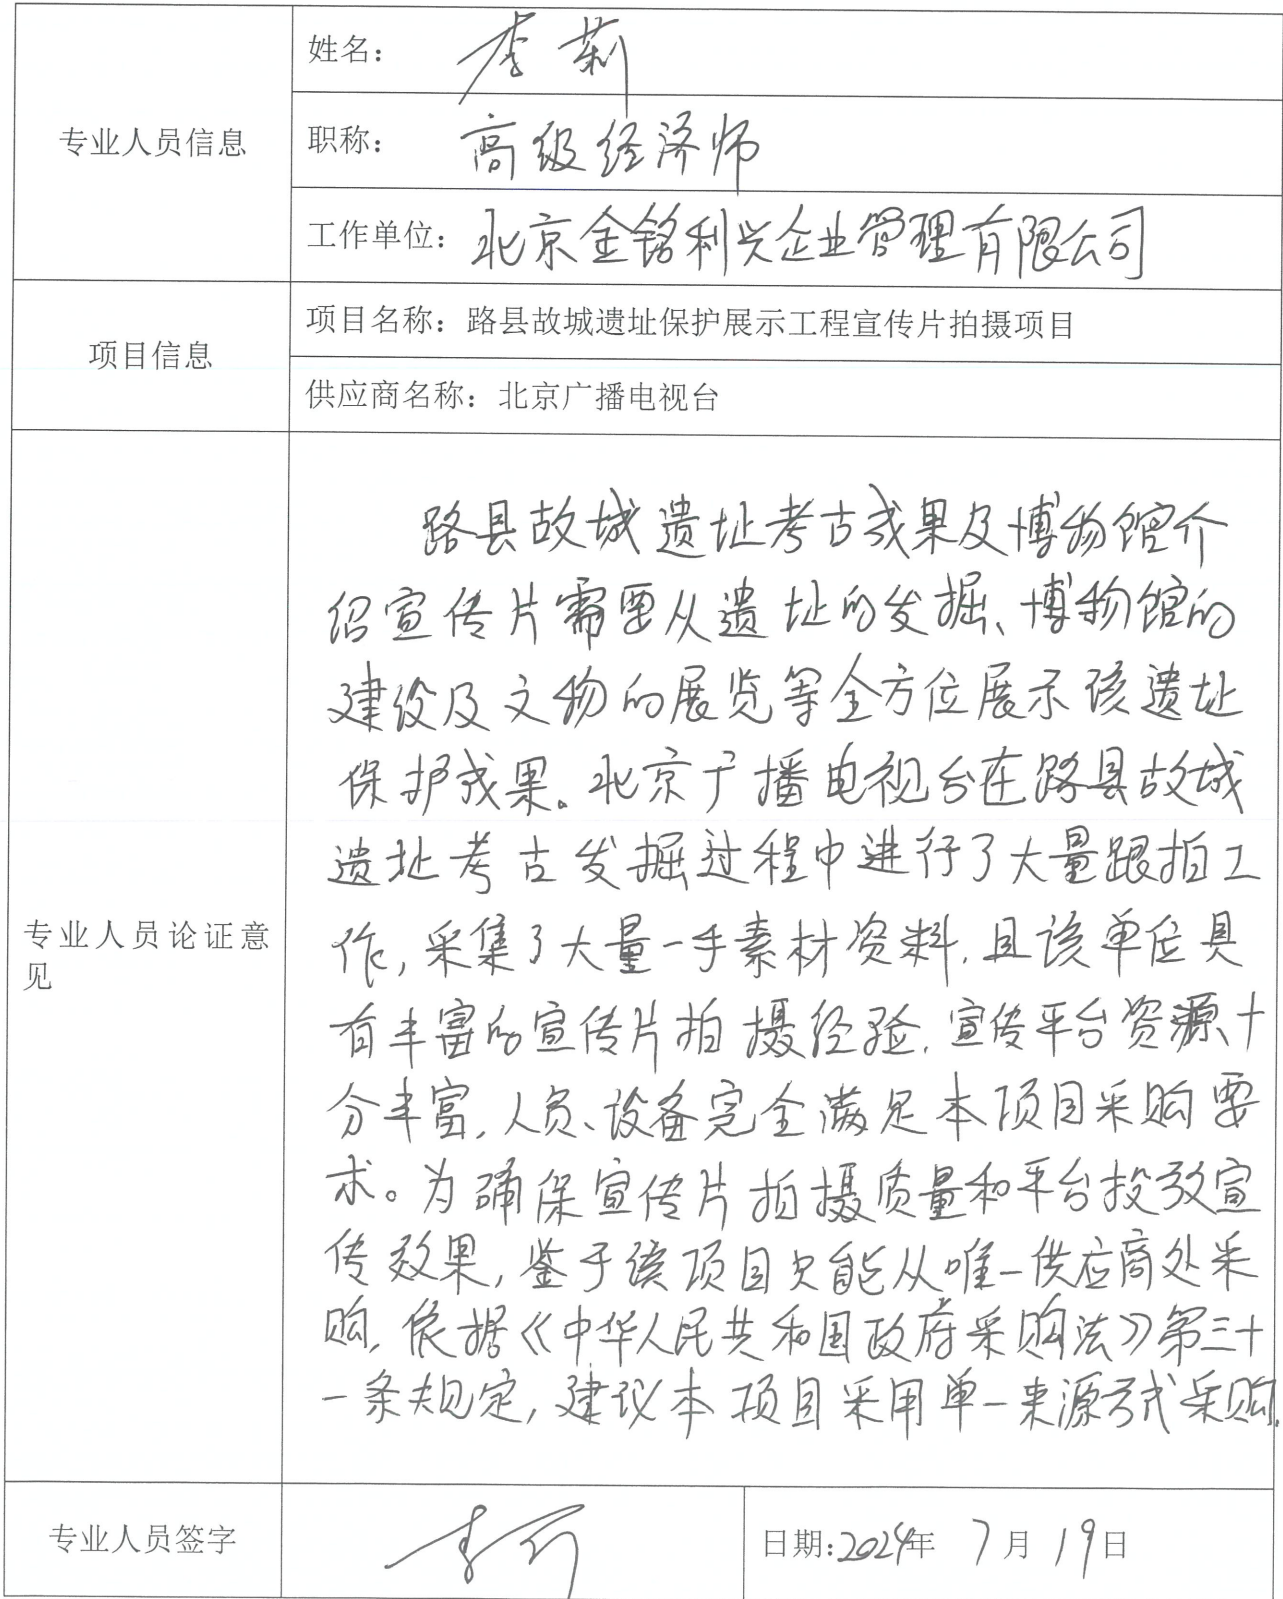 专业人员信息
姓名：李莉
职称：高级经济师
工作单位：北京金铭利兴企业管理有限公司
项目信息
项目名称：路县故城遗址保护展示工程宣传片拍摄项目
供应商名称：北京广播电视台
专业人员论证意
见
路县故城遗址考古成果及博物馆介
绍宣传片需要从遗址的发掘、博物馆的
建设及文物的展览等全方位展示该遗址
保护成果。北京广播电视台在路县故城
遗址考古发掘过程中进行了大量跟拍工
作，采集了大量一手素材资料，且该单位具
有丰富的宣传片拍摄经验，宣传平台资源十
分丰富，人员、设备完全满足本项目采购要
求。为确保宣传片拍摄质量和平台投放宣
传效果，鉴于该项目只能从唯一供应商处采
购，依据《中华人民共和国政府采购法》第三十
一条规定，建议本项目采用单一来源方式采购。
专业人员签字
李莉
日期：2024年 7月19日